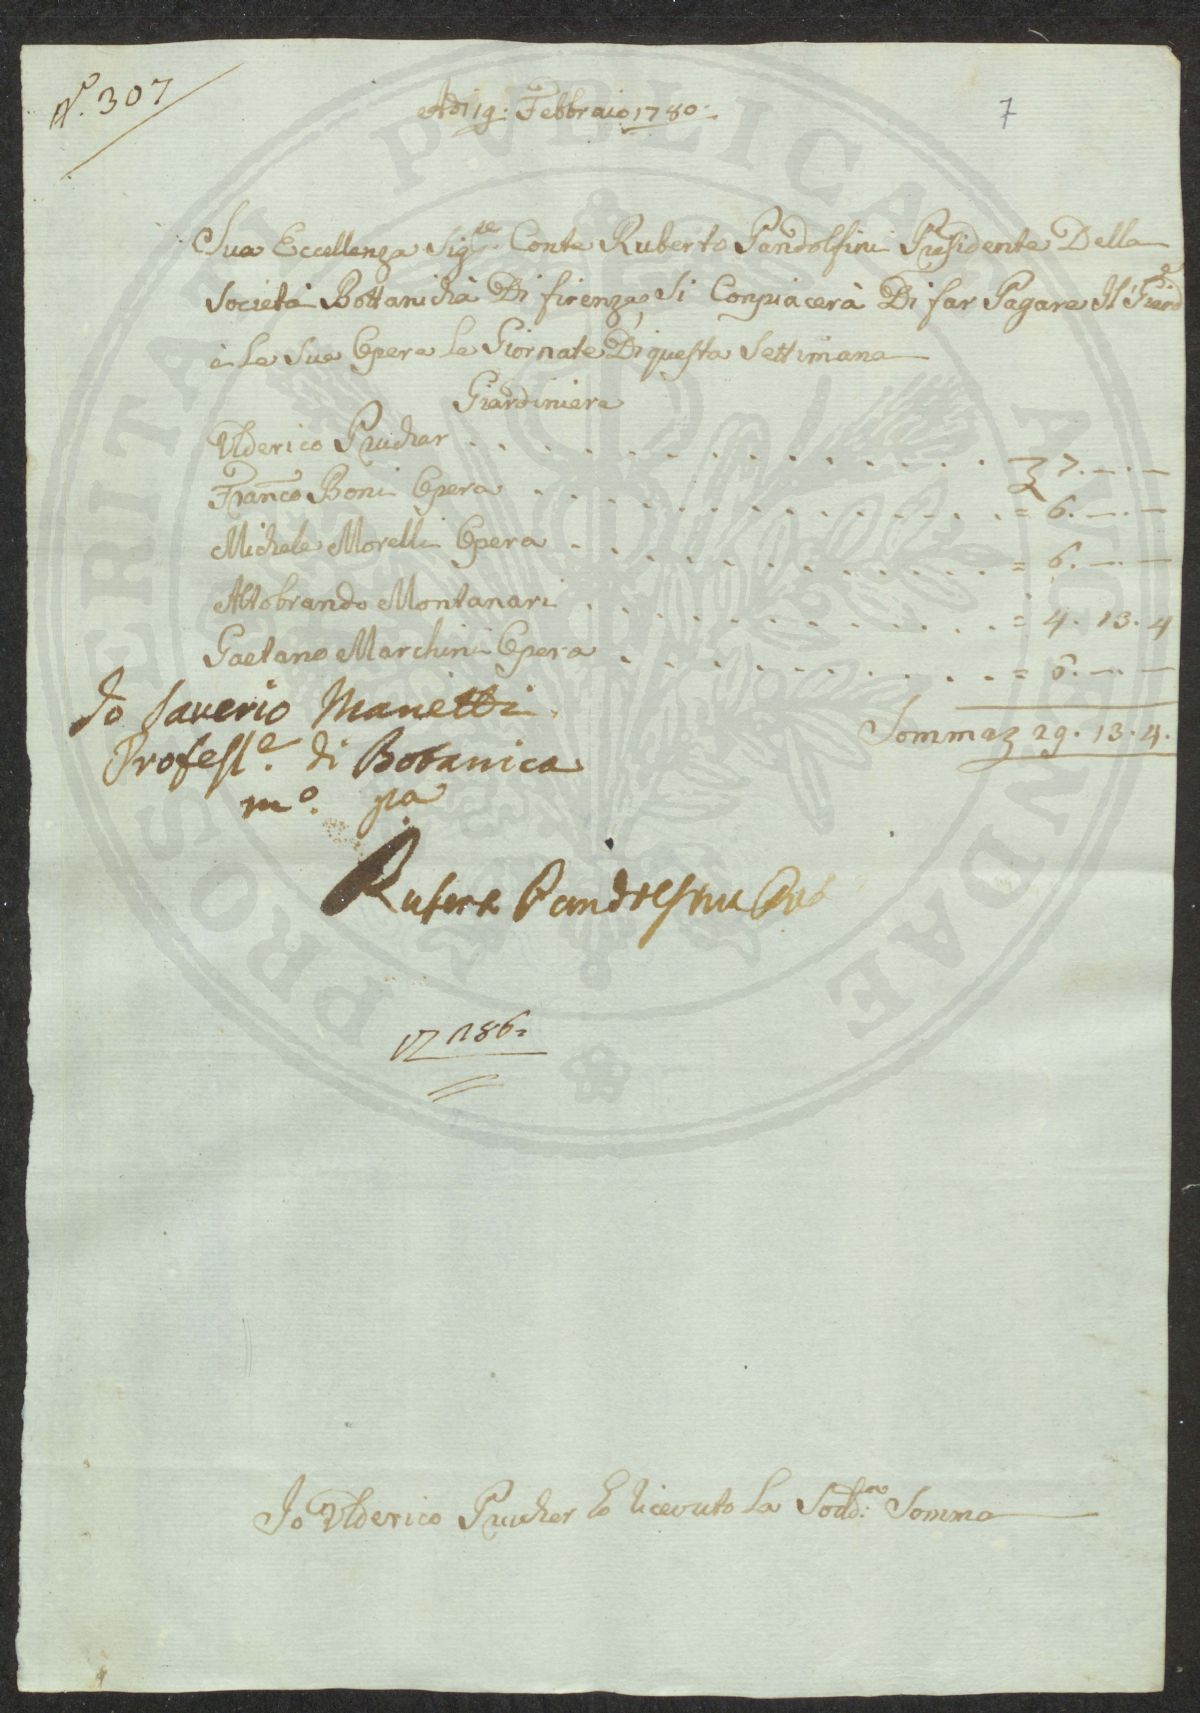 N.° 307
Adi 19: Febbraio 1780.
7
Sua Eccellenza Sig.re Conte Ruberto Pandolfini Presidente Della
Società Bottanicha Di firenze, Si Conpiacerà Di far Pagare Il Giard.e
e Le Sue Opera Le Giornate Di questa Settimana
Giardiniere
Ulderico Prucher . . . . . . . . . . . . . . . . 7. — . —
Franc.o Boni Opera . . . . . . . . . . . . . . = 6. — . —
Michele Morelli Opera . . . . . . . . . . . . = 6. — . —
Altobrando Montanari . . . . . . . . . . . . = 4. 13. 4
Gaetano Marchini Opera . . . . . . . . . . . = 6. — . —
Somma 29. 13. 4.
Io Saverio Manetti
Profess.e di Botanica
m.o pa
Pandolfini
186.
Io Ulderico Prucher ho ricevuto La Sodd.a Somma
PROSPERITATI PVBLICAE AVGENDAE